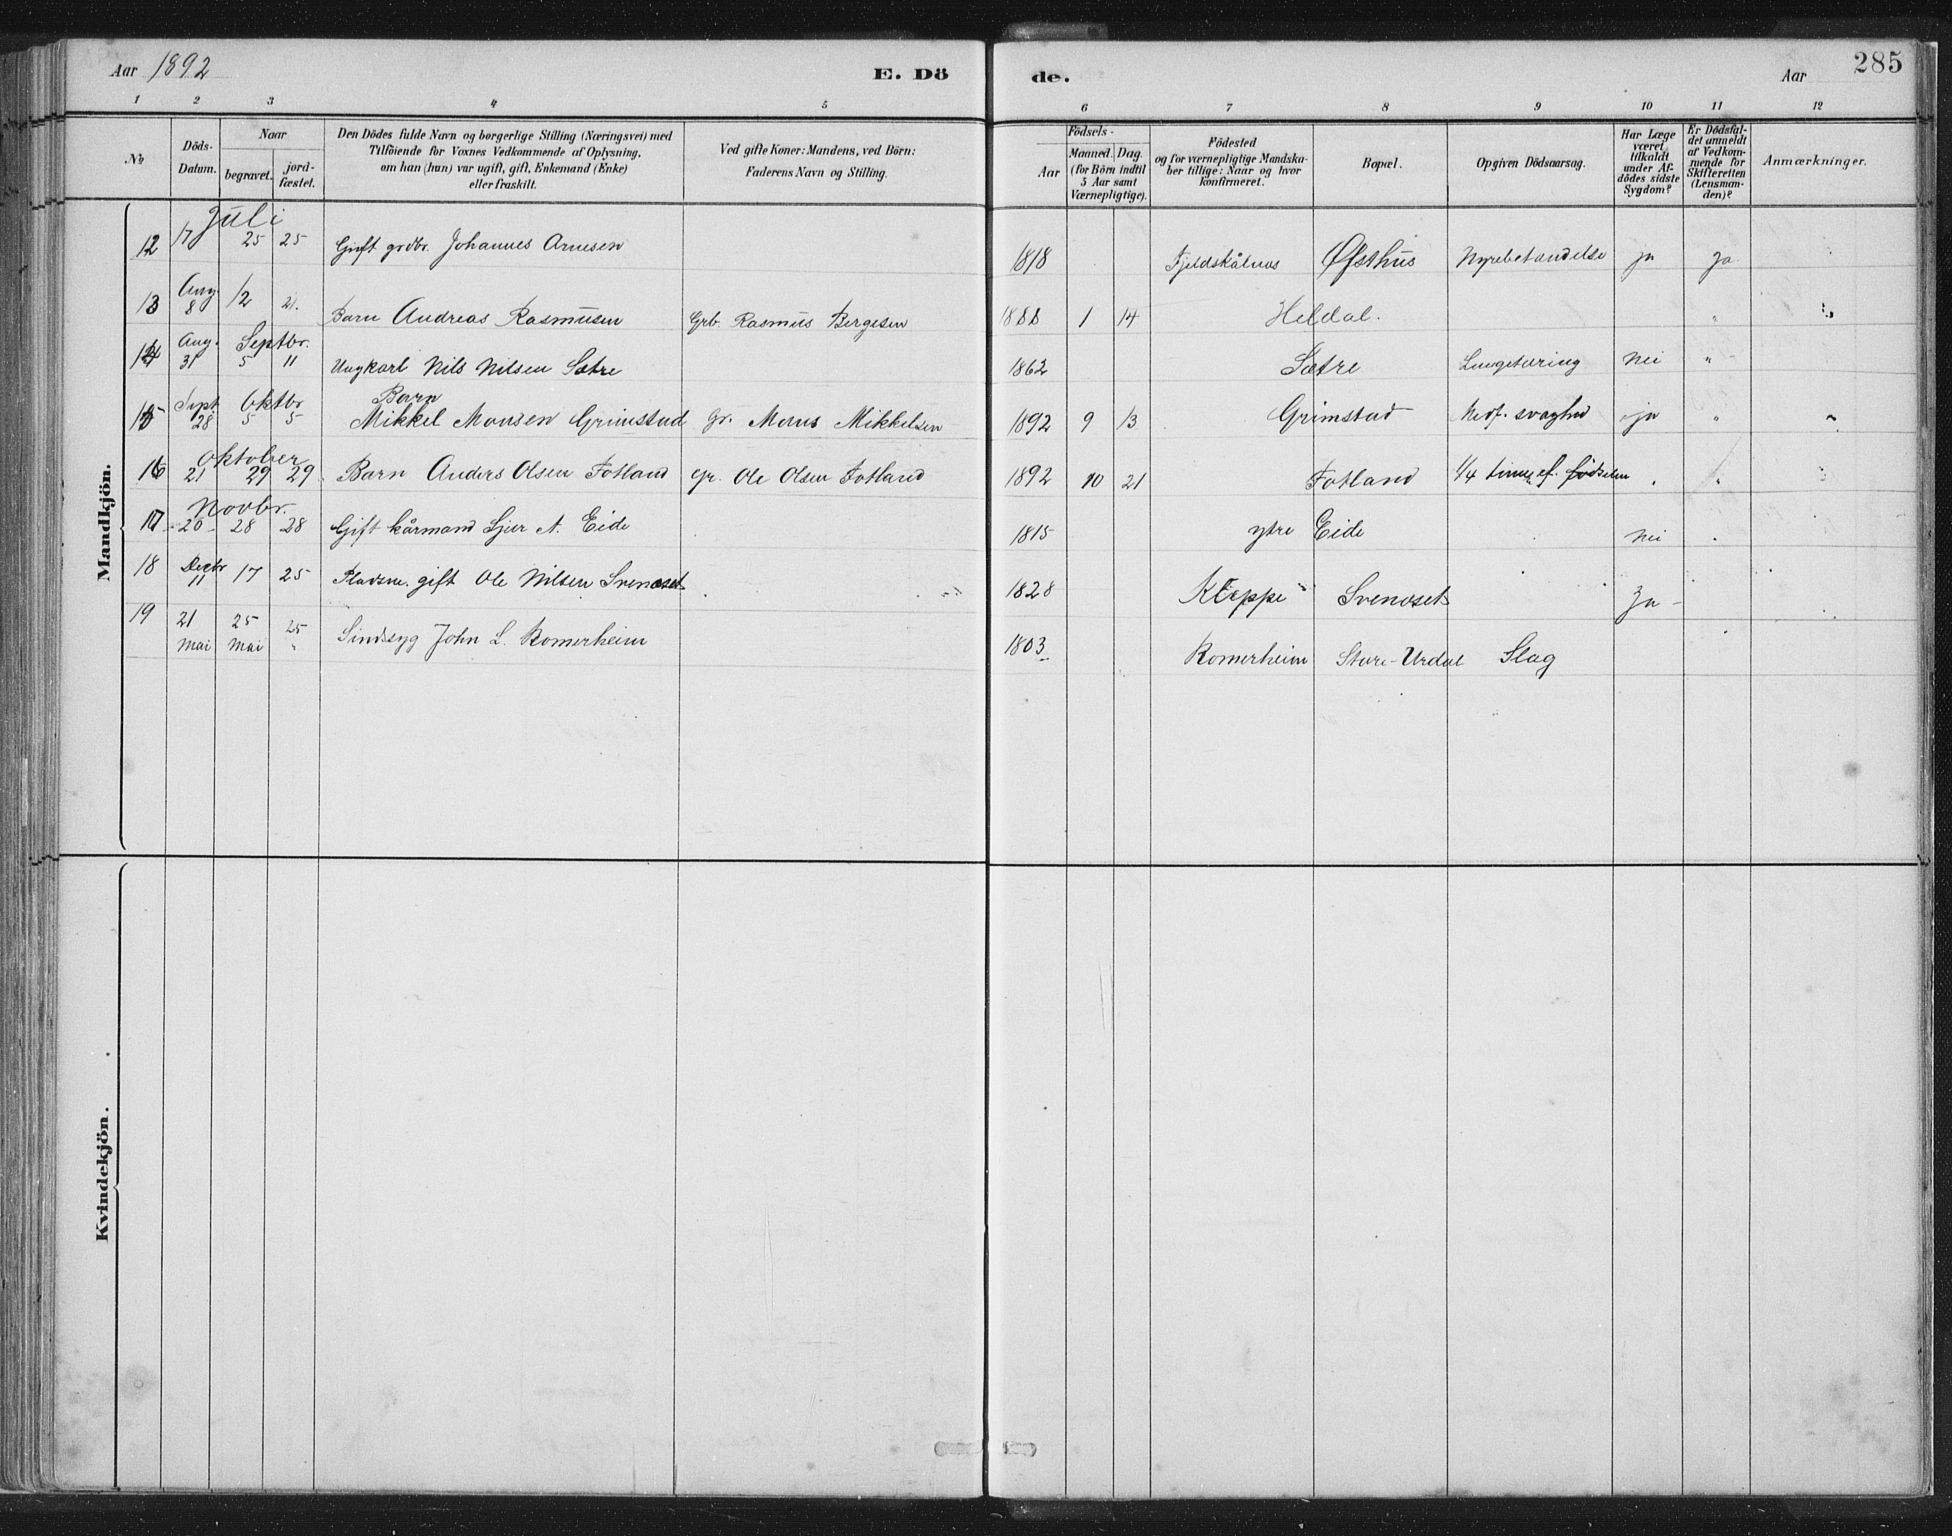 Aar 1892 E. Dö de. Aar 285
1 2 3 4 5 6 7 8 9 10 11 12
No
Döds-Datum.
Naar
begravet.
jord-fæstet.
Den Dödes fulde Navn og borgerlige Stilling (Næringsvei) med
Tilföiende for Voxnes Vedkommende af Oplysning,
om han (hun) var ugift, gift, Enkemand (Enke)
eller fraskilt.
Ved gifte Koner: Mandens, ved Börn:
Faderens Navn og Stilling.
Födsels-
Aar
Maaned. Dag.
(for Börn indtil
5 Aar samt
Værnepligtige).
Födested
og for værnepligtige Mandska-
ber tillige: Naar og hvor
konfirmeret.
Bopæl.
Opgiven Dödsaarsag.
Har Læge
været
tilkaldt
under Af-
dödes sidste
Sygdom?
Er Dödsfal-
det anmeldt
af Vedkom-
mende for
Skifteretten
(Lensman-
den)?
Anmærkninger.
Mandkjön.
Juli
12 17 25 25 Gift grdbr. Johannes Arnesen 1818 Fjeldskålnes Øfsthus Nyrebetændelse ja ja
Aug
13 8 12 21. Barn Andreas Rasmusen Grb. Rasmus Bergesen 1888 1 14 Heldal. "
Aug. Septbr.
14 31 5 11 Ungkarl Nils Nilsen Sætre 1862 Sætre Lungetæring Nei "
Sept Oktbr Barn
15 28 5 5 Mikkel Monsen Grimstad gr. Mons Mikkelsen 1892 9 13 Grimstad Medf. svaghed ja "
Oktober
16 21 29 29 Barn Anders Olsen Fotland gr. Ole Olsen Fotland 1892 10 21 Fotland 1/4 time ef. fødselen "
Novbr.
17 20 28 28 Gift kårmand Sjur A. Eide 1815 ytre Eide Nei
Decbr
18 11 17 25 Pladsm. gift Ole Nilsen Svenoset 1828 Kleppe Svenoset Ja
19 21 25 25 Sindsyg John L. Romerheim 1803 Romerheim Store-Urdal Slag
Mai Mai "
Kvindekjön.